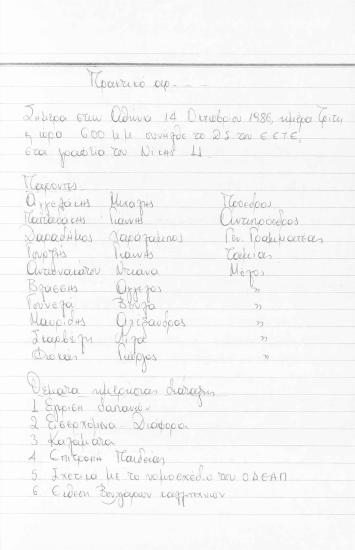 Πρακτικό αρ. - - - -
Σήμερα στην Αθήνα 14 Οκτωβρίου 1986, ημέρα Τρίτη
η ώρα 6 00 μμ συνήλθε το ΔΣ του ΕΕΤΕ,
στα γραφεία του Νίκης 11.
Παρόντες
Αγγελάκης Μιχάλης Πρόεδρος
Παπαδάκης Γιάννης Αντιπρόεδρος
Δαραδήμος Χαράλαμπος Γεν. Γραμματέας
Γουρζής Γιάννης Ταμίας
Αντωνακάτου Ντιάνα Μέλος
Βλάσσης Άγγελος "
Γουνελά Βούλα "
Μαυρίδης Αλέξανδρος "
Σκαρβέλη "
Φωκάς Γιώργος "
Θέματα ημερήσιας διάταξης
1 Έγκριση δαπανών
2 Εισερχόμενα - Διάφορα
3 Καλαμάτα
4 Επιτροπή Παιδείας
5 Σχετικά με το νομοσχέδιο του ΟΔΕΑΠ
6 Έκθεση Βουλγάρων καλλιτεχνών